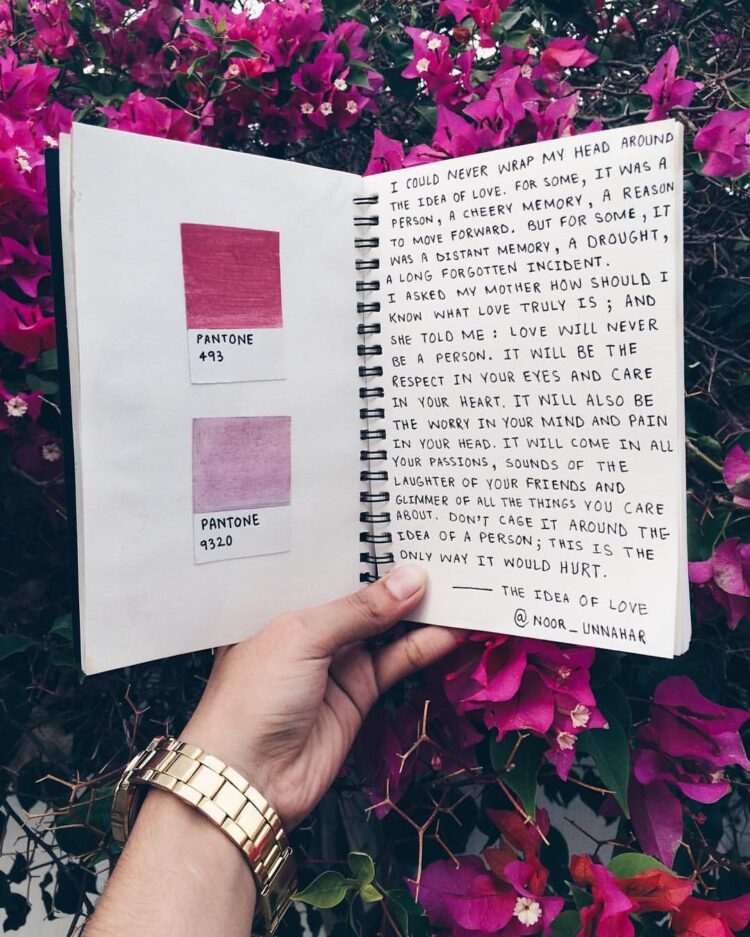 PANTONE
493
PANTONE
9320
I COULD NEVER WRAP MY HEAD AROUND
THE IDEA OF LOVE. FOR SOME, IT WAS A
PERSON, A CHEERY MEMORY, A REASON
TO MOVE FORWARD. BUT FOR SOME, IT
WAS A DISTANT MEMORY, A DROUGHT,
A LONG FORGOTTEN INCIDENT.
I ASKED MY MOTHER HOW SHOULD I
KNOW WHAT LOVE TRULY IS; AND
SHE TOLD ME: LOVE WILL NEVER
BE A PERSON. IT WILL BE THE
RESPECT IN YOUR EYES AND CARE
IN YOUR HEART. IT WILL ALSO BE
THE WORRY IN YOUR MIND AND PAIN
IN YOUR HEAD. IT WILL COME IN ALL
YOUR PASSIONS, SOUNDS OF THE
LAUGHTER OF YOUR FRIENDS AND
GLIMMER OF ALL THE THINGS YOU CARE
ABOUT. DON'T CAGE IT AROUND THE
IDEA OF A PERSON; THIS IS THE
ONLY WAY IT WOULD HURT.
— THE IDEA OF LOVE
@NOOR_UNNAHAR